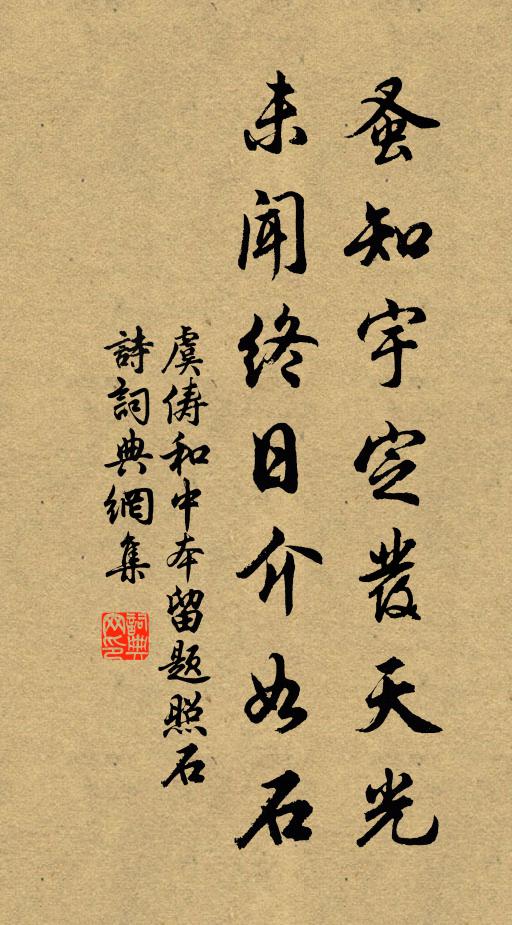 蚤知宇定發天光
未聞終日介如石
虞俦和中本留題照石
詩詞典網集
詞典網印